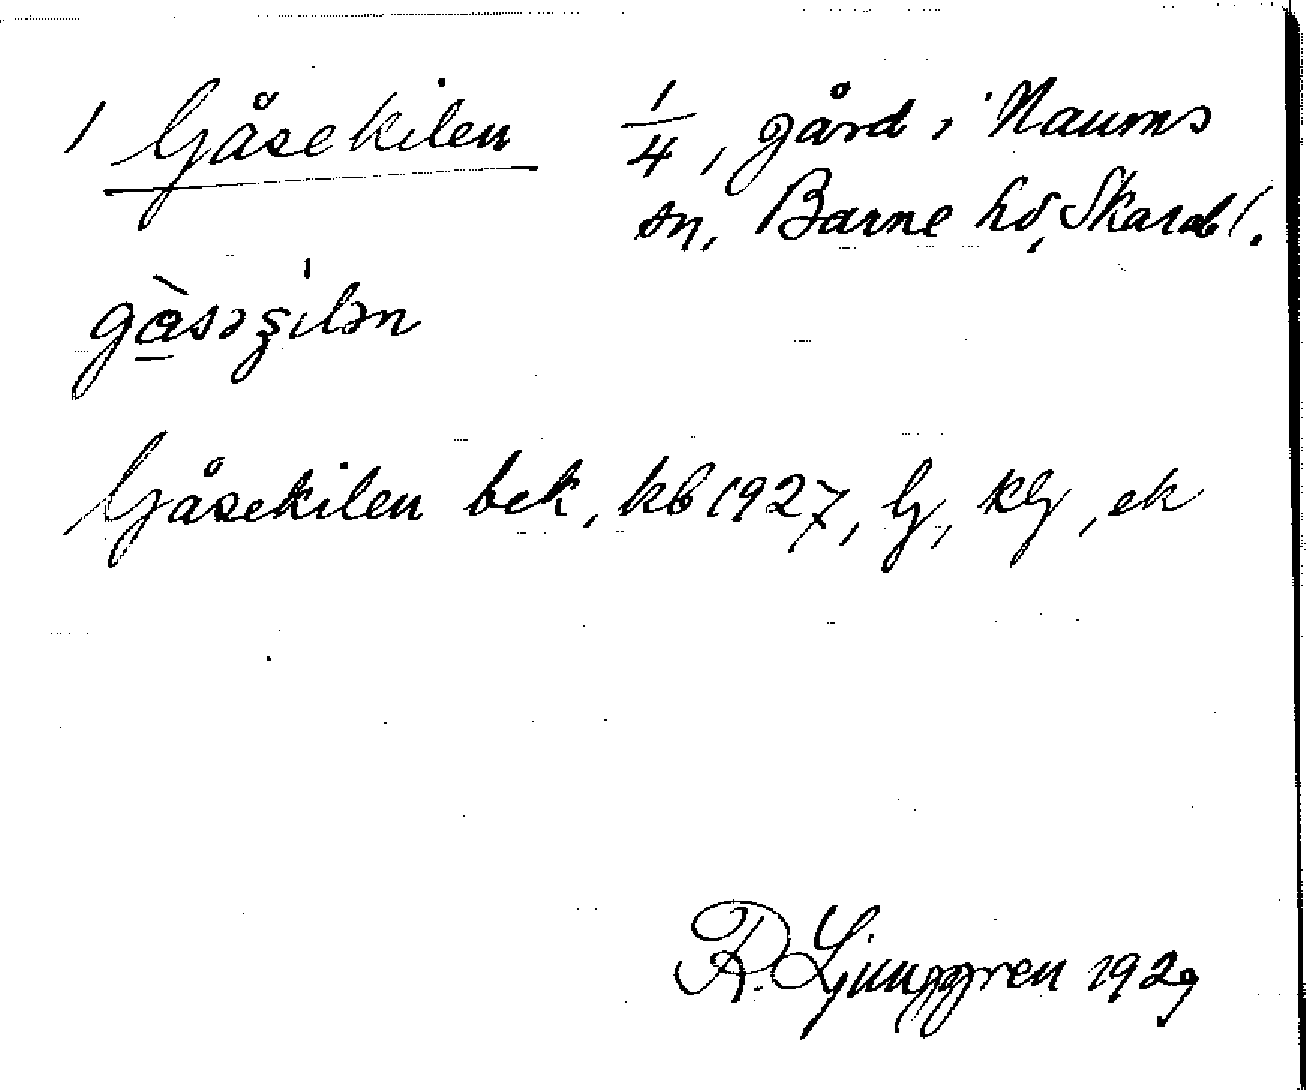 1 Gåsekilen 1/4, gård i Naums
sn, Barne hd, Skarabl.
gɑ̀sə ̧ʂìlən
Gåsekilen bek, kb 1927, lj, klj, ek
R. Ljunggren 1929